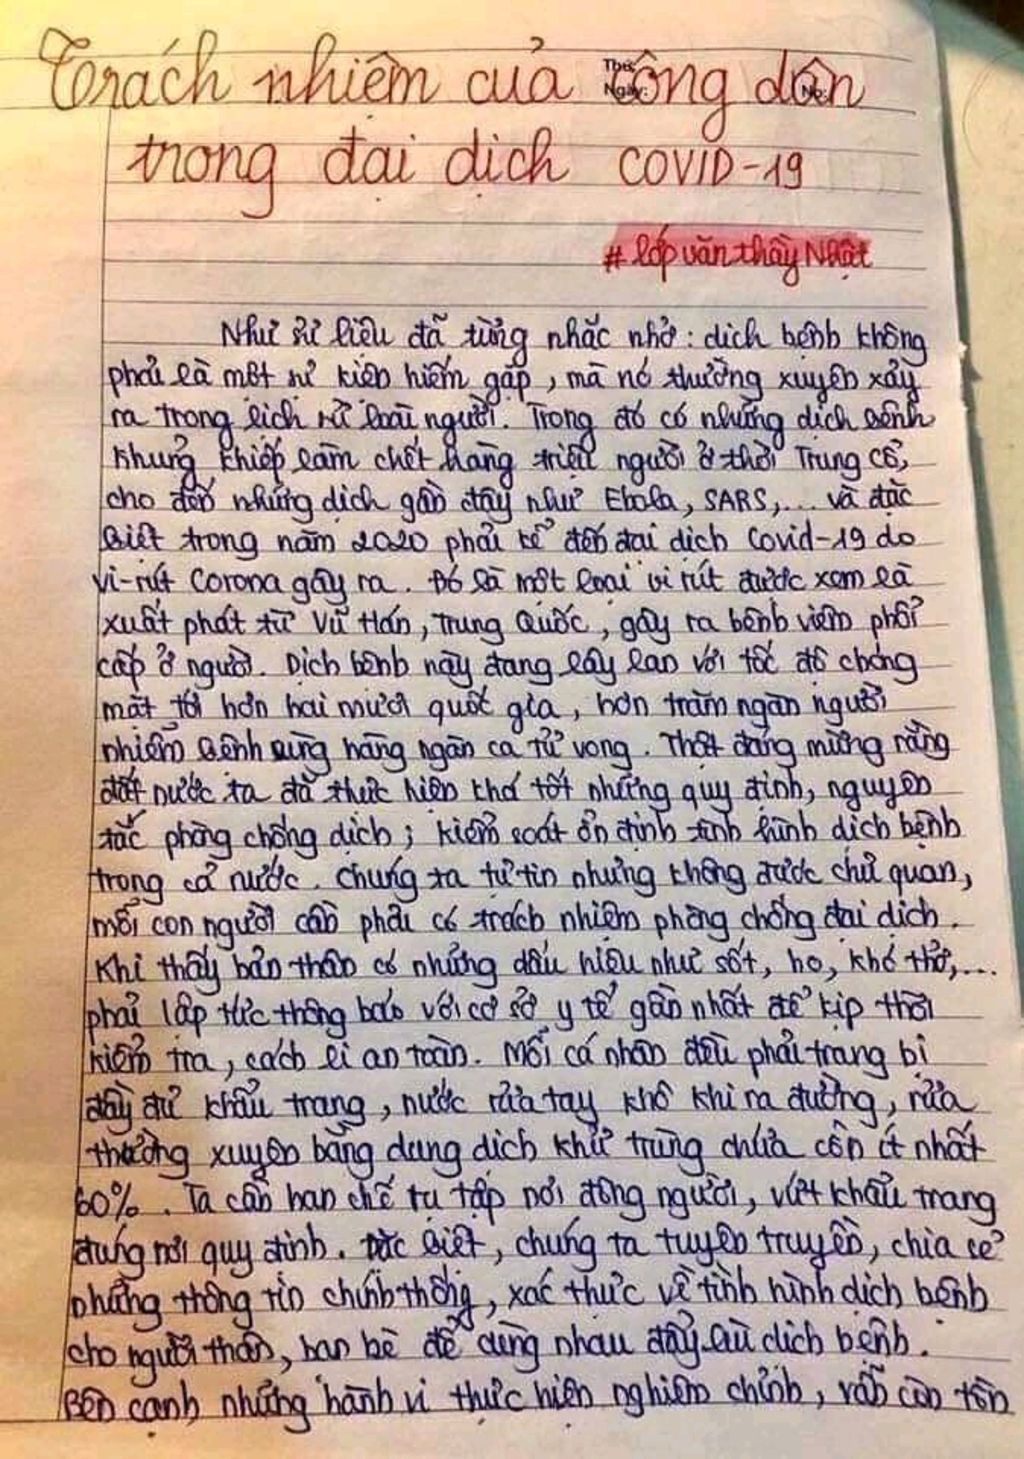 Trách nhiệm của công dân
trong đại dịch COVID-19
# lớp văn thầy Nhật
Như sử liệu đã từng nhắc nhở: dịch bệnh không
phải là một sự kiện hiếm gặp, mà nó thường xuyên xảy
ra trong lịch sử loài người. Trong đó có những dịch bệnh
khủng khiếp làm chết hàng triệu người ở thời Trung cổ,
cho đến những dịch gần đây như Ebola, SARS,... và đặc
biệt trong năm 2020 phải kể đến đại dịch Covid-19 do
vi-rút Corona gây ra. Đó là một loại vi rút được xem là
xuất phát từ Vũ Hán, Trung Quốc, gây ra bệnh viêm phổi
cấp ở người. Dịch bệnh này đang lây lan với tốc độ chóng
mặt tới hơn hai mươi quốc gia, hơn trăm ngàn người
nhiễm bệnh cùng hàng ngàn ca tử vong. Thật đáng mừng rằng
đất nước ta đã thực hiện khá tốt những quy định, nguyên
tắc phòng chống dịch; kiểm soát ổn định tình hình dịch bệnh
trong cả nước. Chúng ta tự tin nhưng không được chủ quan,
mỗi con người cần phải có trách nhiệm phòng chống đại dịch.
Khi thấy bản thân có những dấu hiệu như sốt, ho, khó thở,...
phải lập tức thông báo với cơ sở y tế gần nhất để kịp thời
kiểm tra, cách li an toàn. Mỗi cá nhân đều phải trang bị
đầy đủ khẩu trang, nước rửa tay khô khi ra đường, rửa
thường xuyên bằng dung dịch khử trùng chứa cồn ít nhất
60%. Ta cần hạn chế tụ tập nơi đông người, vứt khẩu trang
đúng nơi quy định. Đặc biệt, chúng ta tuyên truyền, chia sẻ
những thông tin chính thống, xác thực về tình hình dịch bệnh
cho người thân, bạn bè để cùng nhau đẩy lùi dịch bệnh.
Bên cạnh những hành vi thực hiện nghiêm chỉnh, vẫn còn tồn